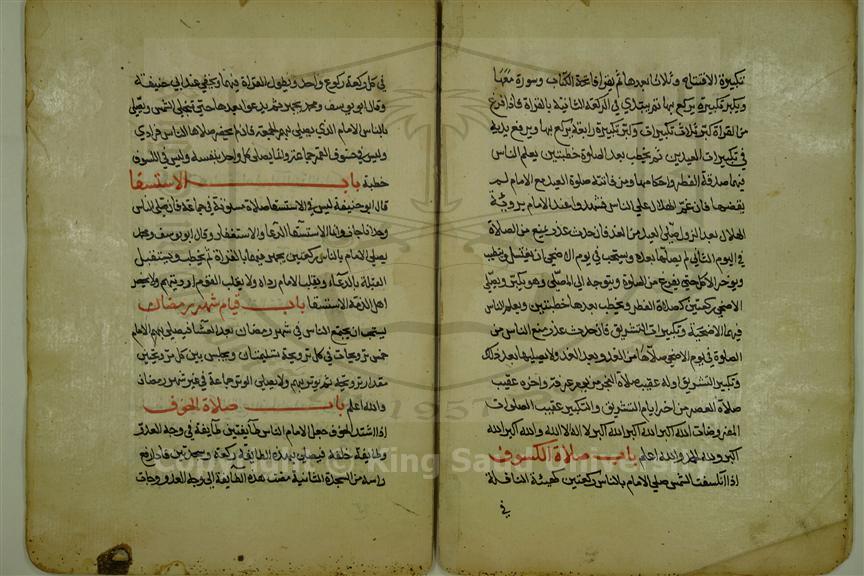 تكبيرة الافتتاح وثلاثا بعدها ثم يقرا فاتحة الكتاب وسورة معها
ويكبر تكبيرة يركع بها ثم يبتدي في الركعة الثانية بالقراة فاذا فرغ
من القراة كبر ثلاث تكبيرات وكبر تكبيرة رابعة يركع بها ويرفع يديه
في تكبيرات العيدين ثم يخطب بعد الصلوة خطبتين يعلم الناس
فيها صدقة الفطر واحكامها ومن فاتته صلوة العيد مع الامام لم
يقضها فان غم الهلال علي الناس فشهدوا عند الامام بروية
الهلال بعد الزوال صلي العيد من الغد فان حدث عذر منع من الصلاة
في اليوم الثاني لم يصلها بعده ويستحب في يوم الاضحي ان يغتسل ويتطيب
ويوخر الاكل حتي يفرغ من الصلوة ويتوجه الي المصلي وهو يكبر ويصلي
الاضحي ركعتين كصلاة الفطر ويخطب بعدها خطبتين ويعلم الناس
فيها الاضحية وتكبيرات التشريق فان حدث عذر منع الناس من
الصلوة في يوم الاضحي صلاها من الغد وبعد الغد ولا يصليها بعد ذلك
وتكبير التشريق اوله عقيب صلاة الفجر من يوم عرفة واخره عقيب
صلاة العصر من اخر ايام التشريق والتكبير عقيب الصلوات
المفروضات الله اكبر الله اكبر الله اكبر لا اله الا الله والله اكبر الله
اكبر ولله الحمد والله اعلم باب صلاة الكسوف
اذا انكسفت الشمس صلي الامام بالناس ركعتين كهيئة النافلة
في
في كل ركعة ركوع واحد ويطول القراة فيهما ويخفي عند ابي حنيفة
وقال ابو يوسف ومحمد يجهر ثم يدعو بعدها حتي تنجلي الشمس ويصلي
بالناس الامام الذي يصلي بهم الجمعة فان لم يحضر صلاها الناس فرادي
وليس في خسوف القمر جماعة وانما يصلي كل واحد بنفسه وليس في الكسوف
خطبة باب الاستسقا
قال ابو حنيفة ليس في الاستسقا صلاة مسنونة في جماعة فان صلي الناس
وحدانا جاز وانما الاستسقا الدعا والاستغفار وقال ابو يوسف ومحمد
يصلي الامام بالناس ركعتين يجهر فيهما بالقراة ثم يخطب ويستقبل
القبلة بالدعاء ويقلب الامام رداه ولا يقلب القوم ارديتهم ولا يحضر
اهل الذمة الاستسقا باب قيام شهر رمضان
يستحب ان يجتمع الناس في شهر رمضان بعد العشا فيصلي بهم الامام
خمس ترويحات في كل ترويحة تسليمتان ويجلس بين كل ترويحتين
مقدار ترويحة ثم يوتر بهم ولا يصلي الوتر جماعة في غير شهر رمضان
والله اعلم باب صلاة الخوف
اذا اشتد الخوف جعل الامام الناس طايفتين طايفة في وجه العدو
وطايفة خلفه فيصلي بهذه الطايفة ركعة وسجدتين فاذا رفع
راسه من السجدة الثانية مضت هذه الطايفة الي وجه العدو وجات
1957
Copyright © King Saud University